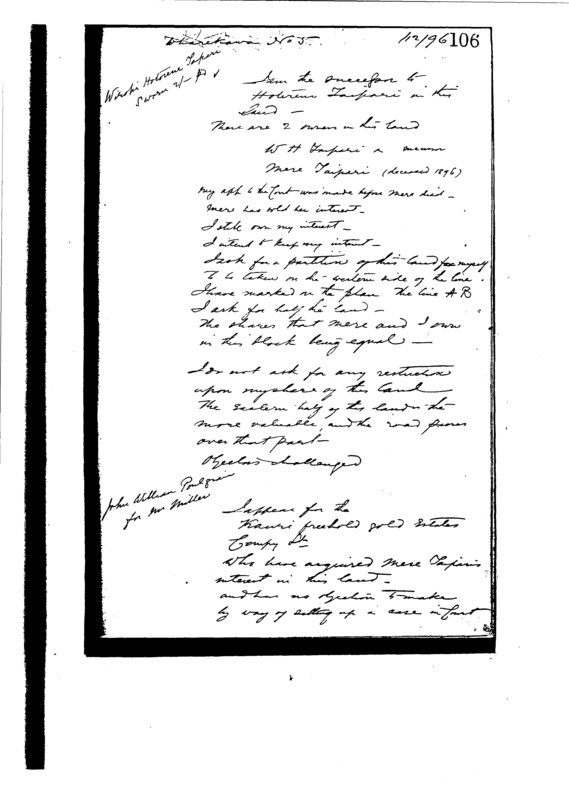 Wharekawa No 5. 1/12/96 106
Wirope Hotorene Taipari
Sworn 2/- Pd
I am the successor to
Hotorene Taipari in this
Land —
There are 2 owners in this land
W H Taipari a
Mere Taipari (deceased 1896)
my apl to the Court was made before Mere died —
Mere has sold her interest —
I still own my interest —
I intend to keep my interest —
I ask for a partition of this land for myself
To be taken on the western side of the line.
I have marked on the plan the line A B
I ask for half the land —
The shares that Mere and I own
in this block being equal —
I do not ask for any restriction
upon my share of this land
The eastern half of this land is the
more valuable, and the road passes
over that part —
Objectors challenged
John William
for Mr Miller
I appear for the
Kauri freehold gold Estates
Compy Ld
who have acquired Mere Taipari's
interest in this land —
and has no objection to make
by way of setting up a case in Court